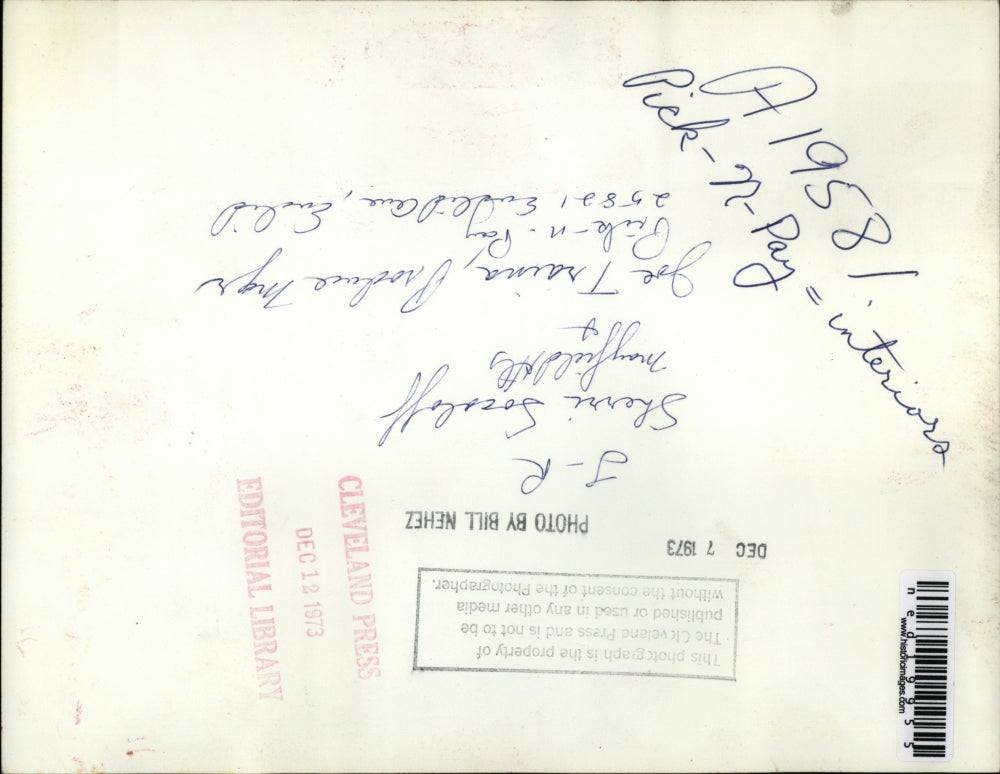 A 1958 1.
Pick-N-Pay = interiors
This photograph is the property of
The Cleveland Press and is not to be
published or used in any other media
without the consent of the Photographer.
DEC 7 1973
PHOTO BY BILL NEHEZ
Sherri
mayfield Hts
+
Joe Traina, Produce mgr
Pick-n-Pay
25821 Euclid Ave, Euclid
CLEVELAND PRESS
DEC 12 1973
EDITORIAL LIBRARY
www.historicimages.com
ned19955